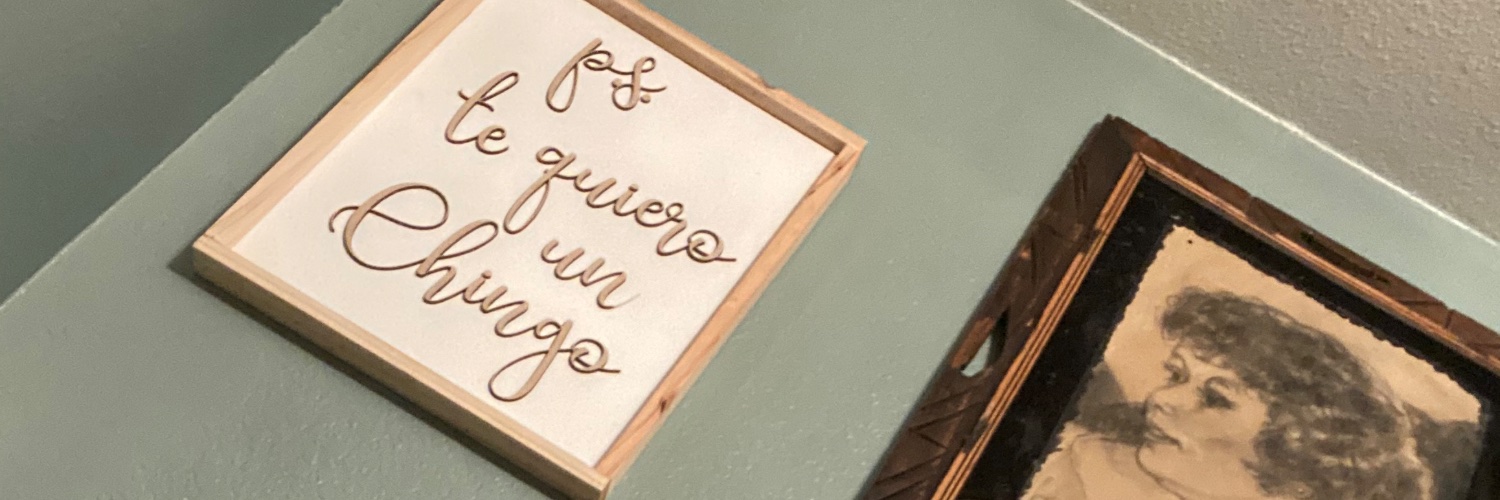 ps.
te quiero
un
Chingo